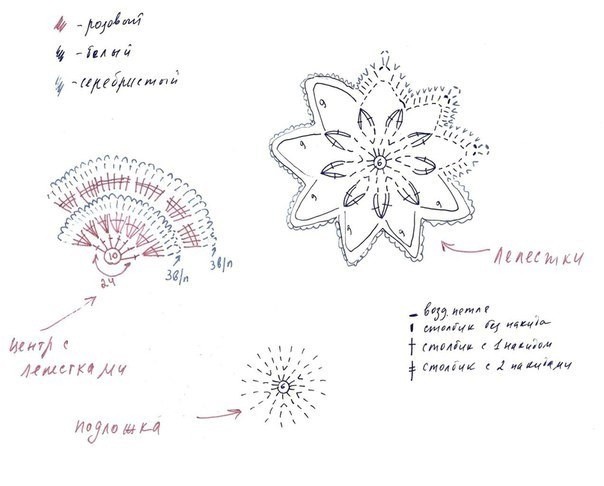 - розовый
- белый
- серебристый
9
9
9
9
9
9
9
6
лепестки
10
24
3в/п
3в/п
центр с
лепестками
- возд. петля
- столбик без накида
- столбик с 1 накидом
- столбик с 2 накидами
6
подложка